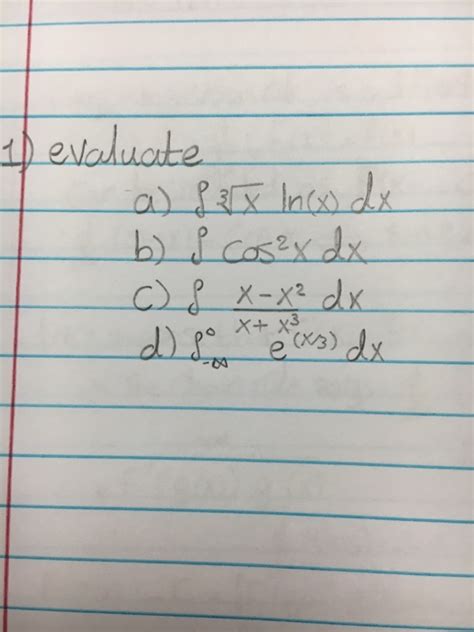 1) evaluate
a) ∫ ∛x ln(x) dx
b) ∫ cos²x dx
c) ∫ x-x² dx
x+x³
d) ∫₋∞⁰ e^(x/3) dx